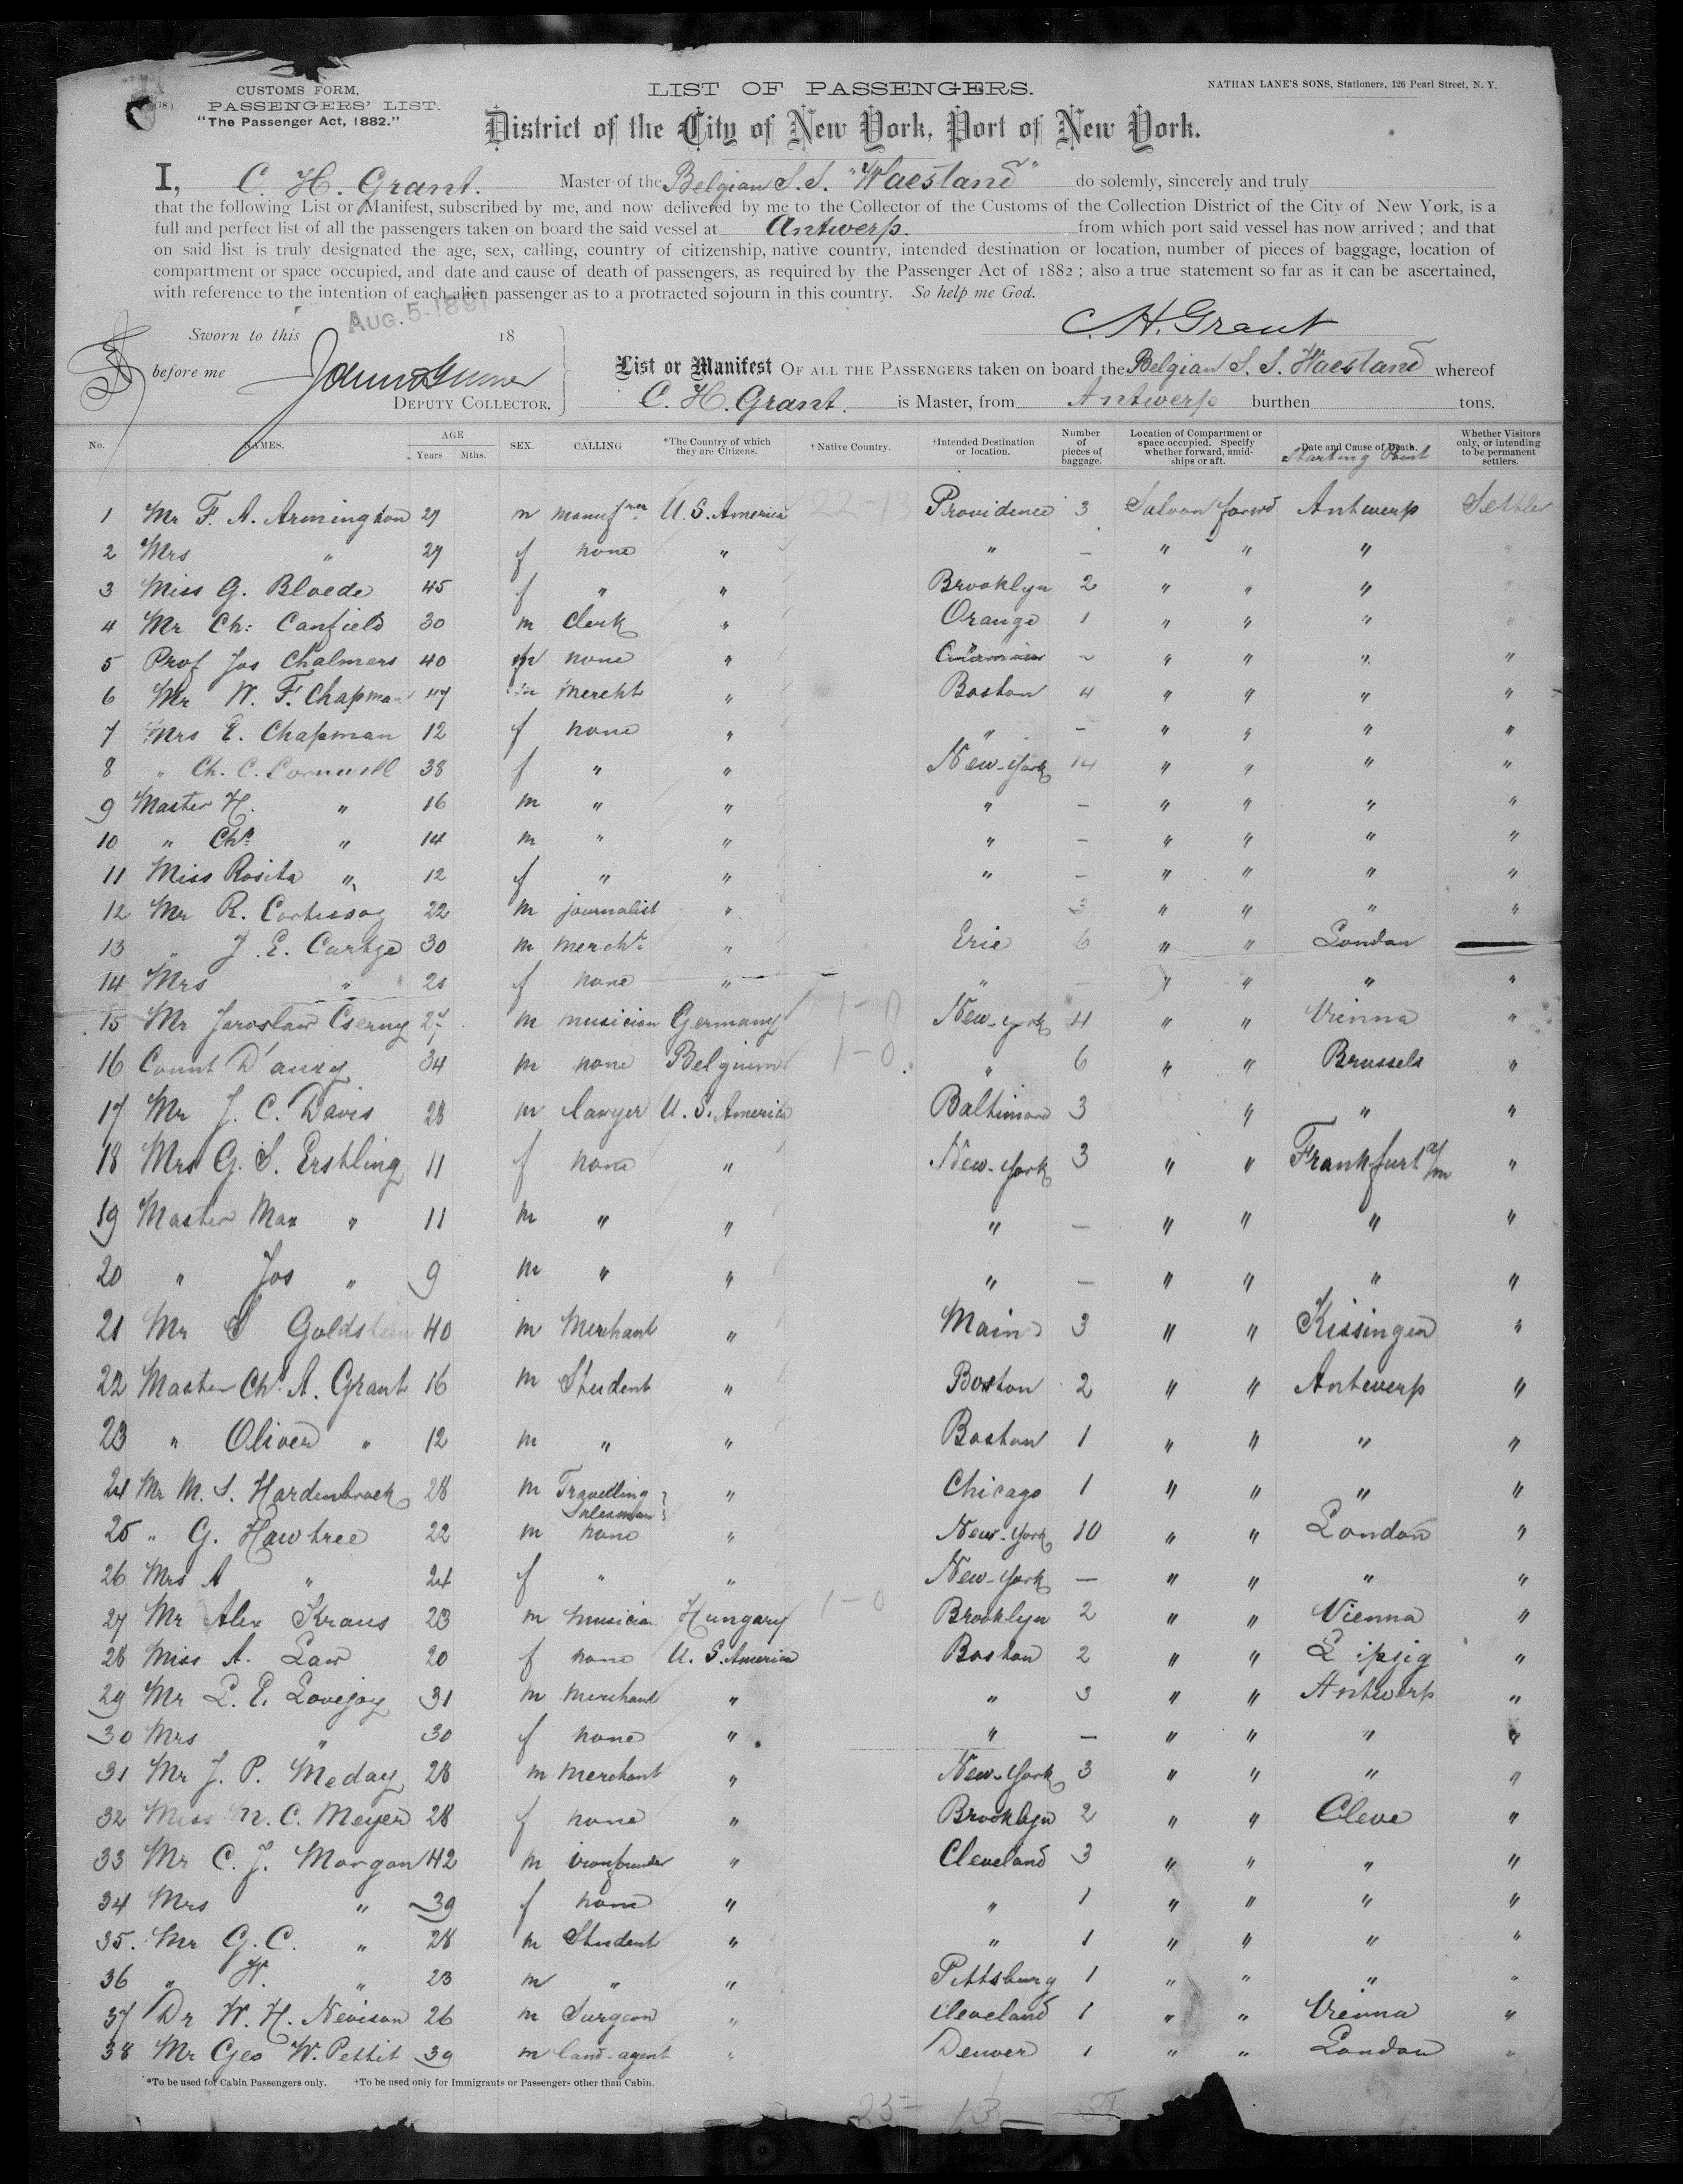 CUSTOMS FORM.
PASSENGERS' LIST.
"The Passenger Act, 1882."
LIST OF PASSENGERS.
NATHAN LANE'S SONS, Stationers, 126 Pearl Street, N. Y.
District of the City of New York, Port of New York.
I, C. H. Grant. Master of the Belgian S.S. "Waesland" do solemnly, sincerely and truly
that the following List or Manifest, subscribed by me, and now delivered by me to the Collector of the Customs of the Collection District of the City of New York, is a
full and perfect list of all the passengers taken on board the said vessel at Antwerp. from which port said vessel has now arrived; and that
on said list is truly designated the age, sex, calling, country of citizenship, native country, intended destination or location, number of pieces of baggage, location of
compartment or space occupied, and date and cause of death of passengers, as required by the Passenger Act of 1882; also a true statement so far as it can be ascertained,
with reference to the intention of each alien passenger as to a protracted sojourn in this country. So help me God.
AUG. 5-1891
C. H. Grant
Sworn to this 18
before me
DEPUTY COLLECTOR.
List or Manifest OF ALL THE PASSENGERS taken on board the Belgian S. S. Waesland whereof
C. H. Grant. is Master, from Antwerp burthen tons.
No. NAMES. AGE Years Mths. SEX. CALLING *The Country of which they are Citizens. †Native Country. †Intended Destination or location. Number of pieces of baggage. Location of Compartment or space occupied. Specify whether forward, amidships or aft. Date and Cause of Death. Starting Point Whether Visitors only, or intending to be permanent settlers.
1 Mr F. A. Armington 29 m manufrer U. S. America 22-13 Providence 3 Saloon forwd Antwerp Settler
2 Mrs " 29 f none " " - " " "
3 Miss G. Bloede 45 f " " Brooklyn 2 " " "
4 Mr Ch: Canfield 30 m Clerk " Orange 1 " " " "
5 Prof Jos Chalmers 40 m none " - " " " "
6 Mr W. F. Chapman 47 m mercht " Boston 4 " " " "
7 Mrs E. Chapman 12 f none " " - " " " "
8 " Ch. C. Cornwell 38 f " " New-York 14 " " " "
9 Master H. " 16 m " " " - " " " "
10 " Chs " 14 m " " " - " " " "
11 Miss Rosita " 12 f " " " - " " " "
12 Mr R. Cortissoz 22 m journalist " 3 " " " "
13 " J. E. 30 m mercht " Erie 6 " " London
14 Mrs " 21 f none " " - " " " "
15 Mr Jaroslaw Cserny 27 m musician Germany 1-0 New-York 4 " " Vienna "
16 Count D'auxy 34 m none Belgium 1-0 " 6 " " Brussels "
17 Mr J. C. Davis 28 m lawyer U. S. America Baltimore 3 " " "
18 Mrs G. S. Erstling 11 f none " New-York 3 " " Frankfurt a/m "
19 Master Max " 11 m " " " - " " " "
20 " Jos " 9 m " " " - " " " "
21 Mr S Goldstein 40 m Merchant " Main 3 " " Kissingen "
22 Master Chs A. Grant 16 m Student " Boston 2 " " Antwerp "
23 " Oliver " 12 m " " Boston 1 " " " "
24 Mr M. S. Hardenbrock 28 m Travelling Salesman " Chicago 1 " " " "
25 " G. Hawtree 22 m none " New-York 10 " " London "
26 Mrs A " 24 f " " New-York - " " " "
27 Mr Alex Kraus 23 m musician Hungary 1-0 Brooklyn 2 " " Vienna "
28 Miss A. Law 20 f none U. S. America Boston 2 " " Leipzig "
29 Mr L. P. Lovejoy 31 m Merchant " " 3 " " Antwerp "
30 Mrs " 30 f none " " - " " " "
31 Mr J. P. Meday 28 m Merchant " New-York 3 " " " "
32 Miss M. C. Meyer 28 f none " Brooklyn 2 " " Cleve "
33 Mr C. J. Morgan 42 m ironfounder " Cleveland 3 " " " "
34 Mrs " 39 f none " " 1 " " " "
35. Mr G. C. " 28 m Student " " 1 " " " "
36 " W. " 23 m " " Pittsburg 1 " " " "
37 Dr W. H. Nevison 26 m Surgeon " Cleveland 1 " " Vienna "
38 Mr Geo W. Pettit 39 m land-agent " Denver 1 " " London "
*To be used for Cabin Passengers only. †To be used only for Immigrants or Passengers other than Cabin.
25- 13